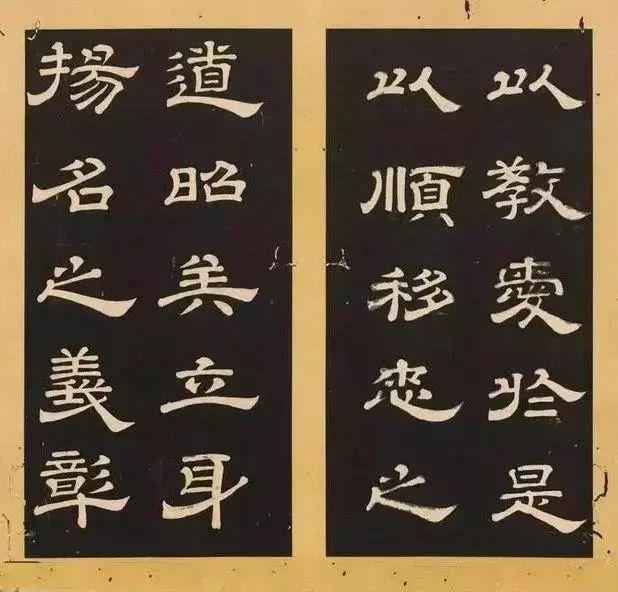 以教愛於是
以順移忠之
道昭美立身
揚名之義彰